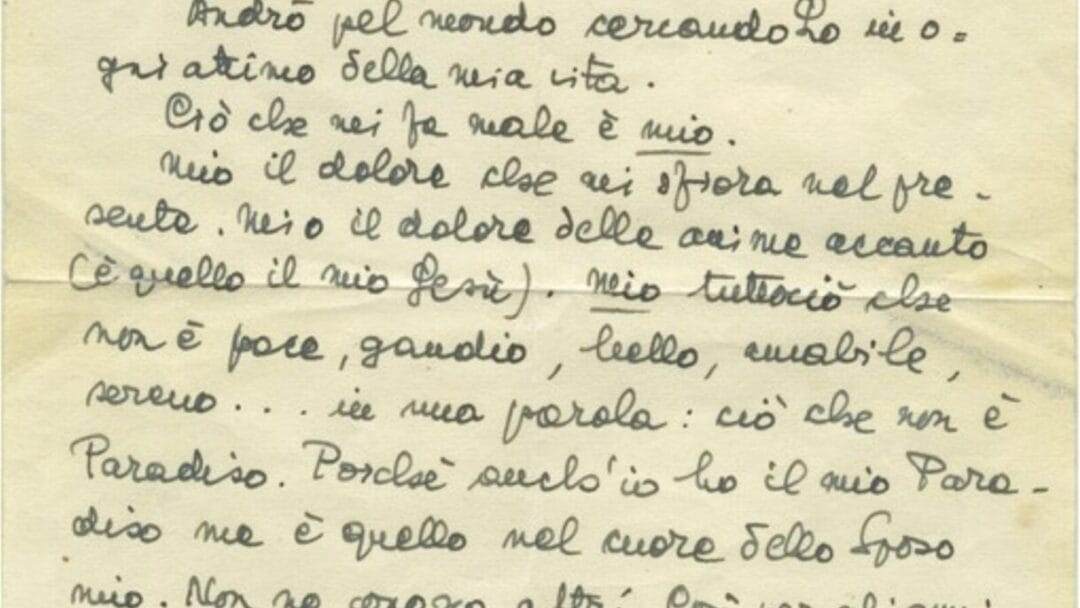 Andrò pel mondo cercandoLo in o=
gni attimo della mia vita.
Ciò che mi fa male è mio.
Mio il dolore che mi sfiora nel pre-
sente. Mio il dolore delle anime accanto
(è quello il mio Gesù). Mio tuttociò che
non è pace, gaudio, bello, amabile,
sereno... in una parola: ciò che non è
Paradiso. Poiché anch'io ho il mio Para-
diso ma è quello nel cuore dello Sposo
mio. Non ne conosco altri. Così per gli anni